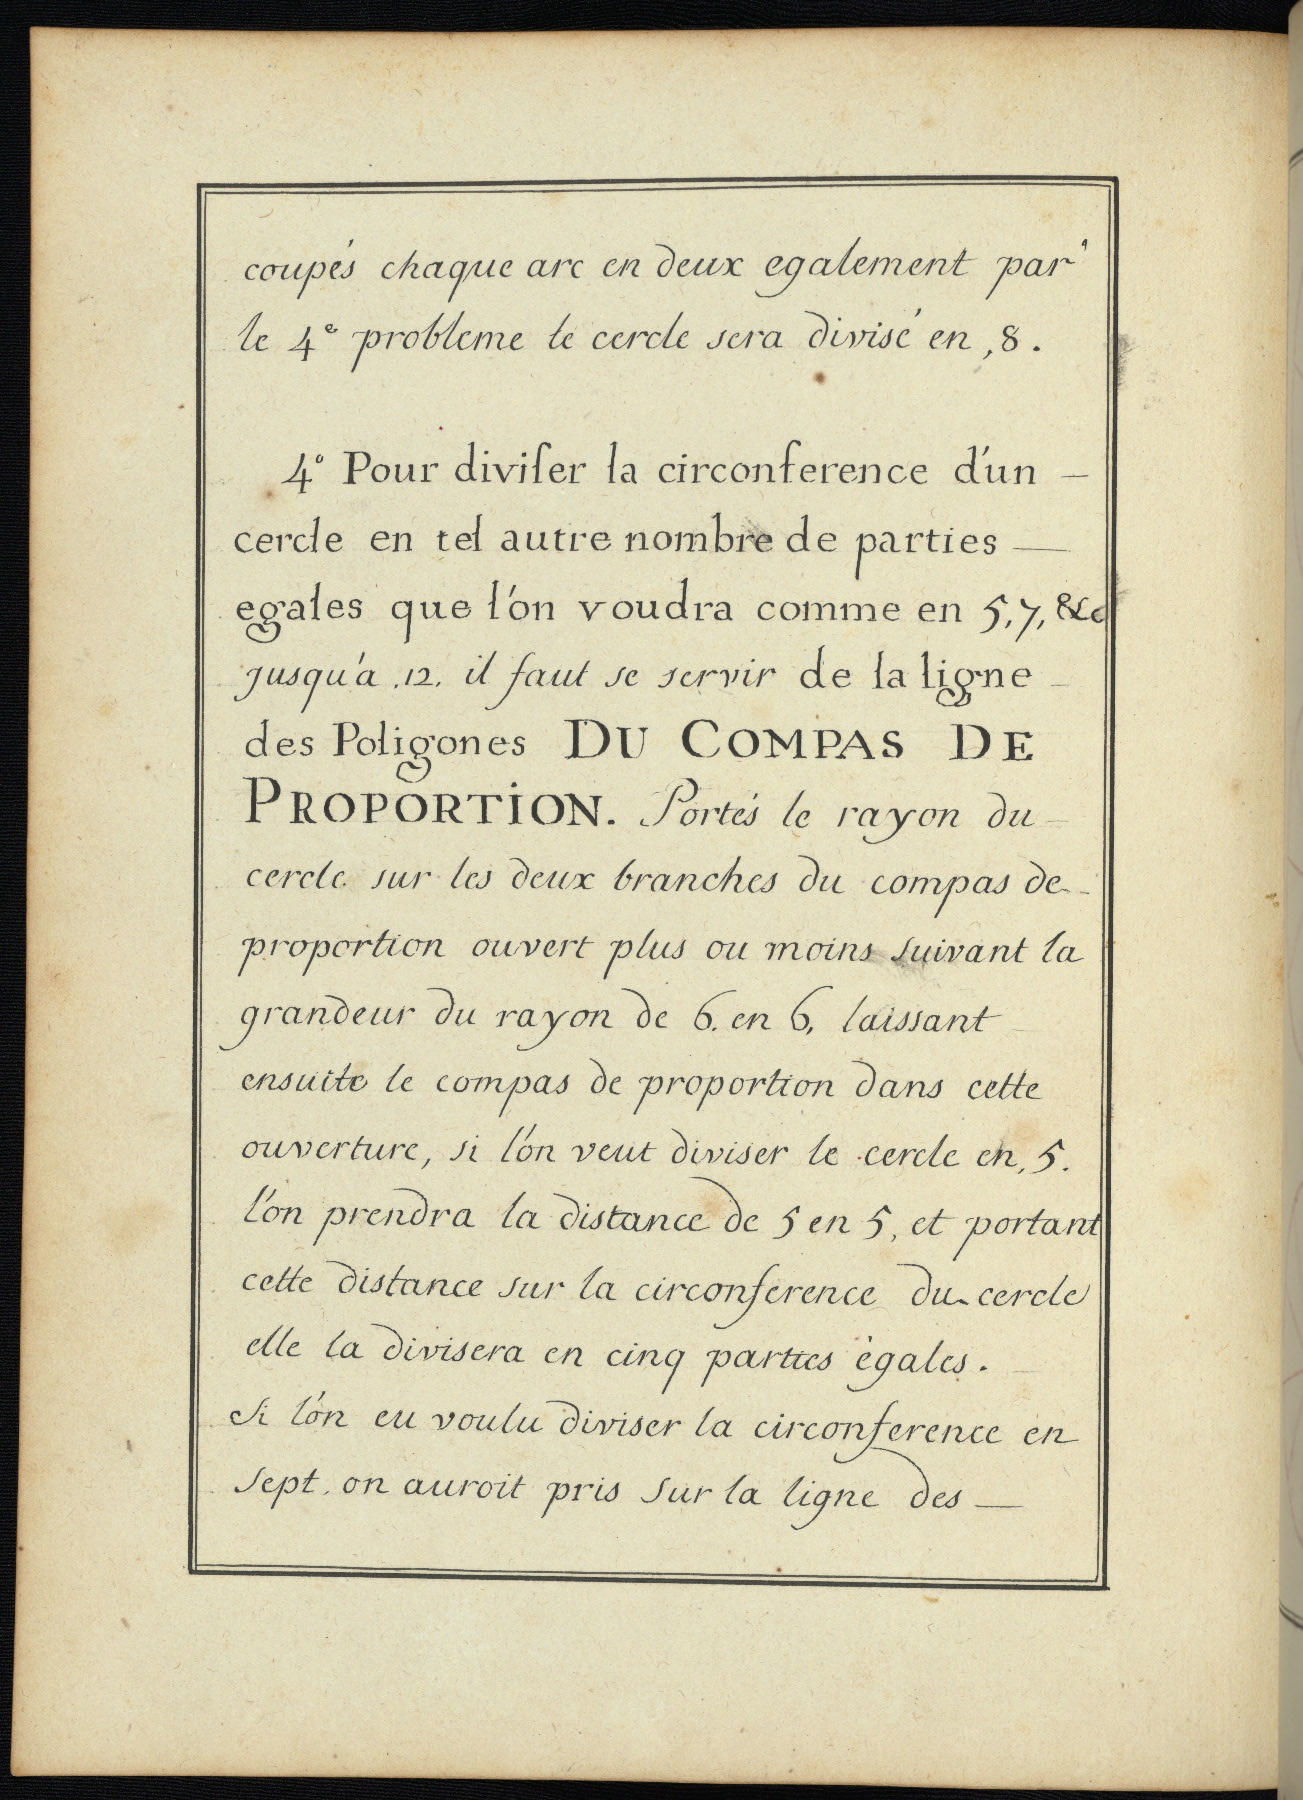 coupés chaque arc en deux egalement par
le 4e probleme le cercle sera divisé en, 8.
4° Pour diviſer la circonference d'un —
cercle en tel autre nombre de parties —
egales que l'on voudra comme en 5, 7, &c
jusqu'a .12. il faut se servir de la ligne
des Poligones DU COMPAS DE
PROPORTION. Portés le rayon du
cercle sur les deux branches du compas de
proportion ouvert plus ou moins suivant la
grandeur du rayon de 6. en 6, laissant
ensuite le compas de proportion dans cette
ouverture, si l'on veut diviser le cercle en, 5.
l'on prendra la distance de 5 en 5, et portant
cette distance sur la circonference du cercle
elle la divisera en cinq parties égales.
Si l'on eu voulu diviser la circonference en
sept. on auroit pris sur la ligne des —